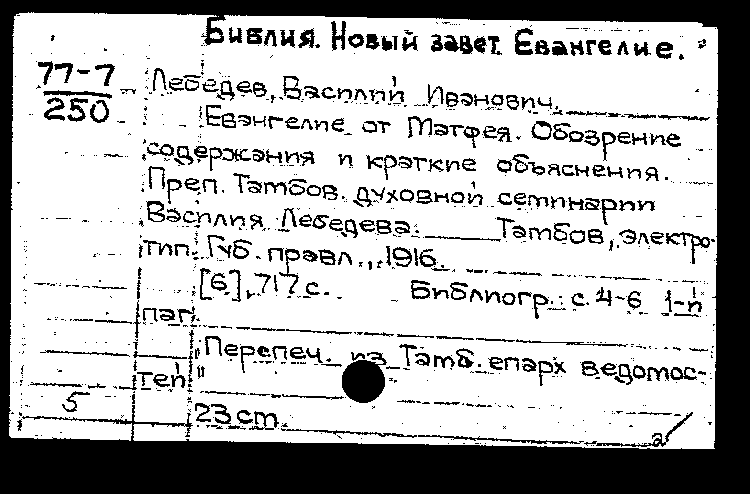 Библия. Новый завет. Евангелие."
77-7
250
Лебедев, Василий Иванович.
Евангелие от Матфея. Обозрение
содержания и краткие объяснения.
Преп. Тамбов. духовной семинарии
Василия Лебедева. Тамбов, электро-
тип. Губ. правл., 1916.
[6], 717 с. Библиогр.: с. 4-6 1-й
паг.
"Перепеч. из Тамб. епарх ведомос-
тей"
5
23 см.
а/